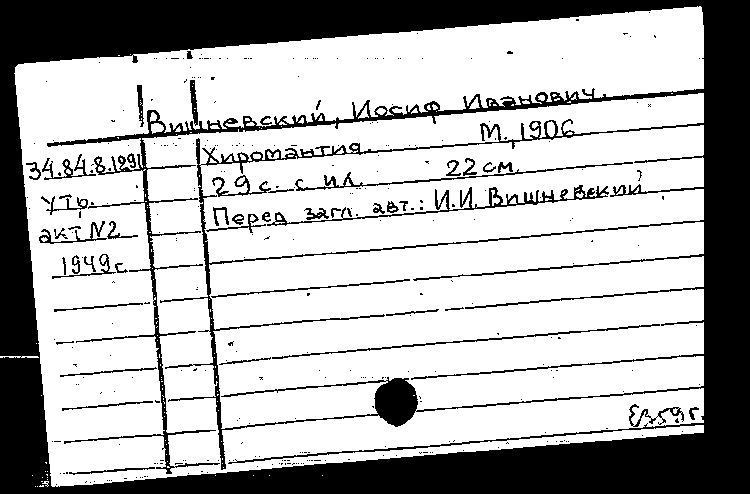 Вишневский, Иосиф Иванович.
34.84.8.1291
Хиромантия. М., 1906
утр.
29 с. с ил. 22 см.
акт N2
Перед загл. авт.: И.И. Вишневский
1949 г.